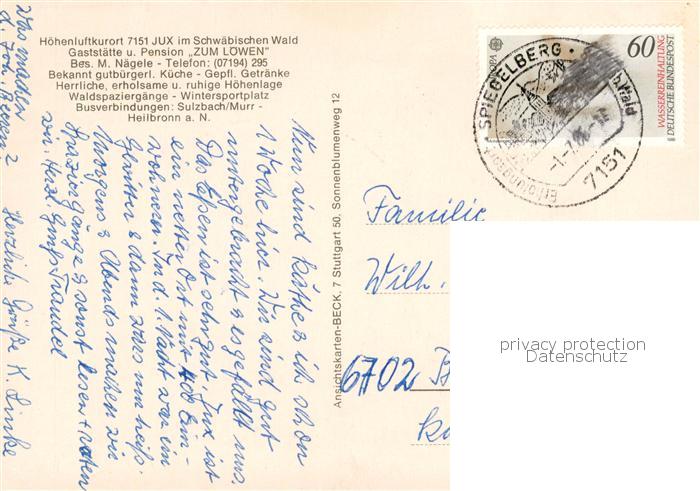 Höhenluftkurort 7151 JUX im Schwäbischen Wald
Gaststätte u. Pension „ZUM LÖWEN"
Bes. M. Nägele - Telefon: (07194) 295
Bekannt gutbürgerl. Küche - Gepfl. Getränke
Herrliche, erholsame u. ruhige Höhenlage
Waldspaziergänge - Wintersportplatz
Busverbindungen: Sulzbach/Murr -
Heilbronn a. N.
Nun sind Käthe & ich schon
1 Woche hier. Wir sind gut
untergebracht & es gefällt uns.
Das Essen ist sehr gut. Jux ist
ein netter Ort mit 400 Ein-
wohnern. In d. 1. Nacht war ein
Gewitter & dann wars nur heiß.
Morgens & Abends machen wir
Spaziergänge & sonst lesen + raten
wir. Herzl. Gruß Traudel
Herzliche Grüße K. Linke
Was machen
d. Joh.
Ansichtskarten-BECK, 7 Stuttgart 50, Sonnenblumenweg 12
EUROPA
60
WASSERREINHALTUNG
DEUTSCHE BUNDESPOST
SPIEGELBERG
7151
Familie
Wilh.
6702
privacy protection
Datenschutz